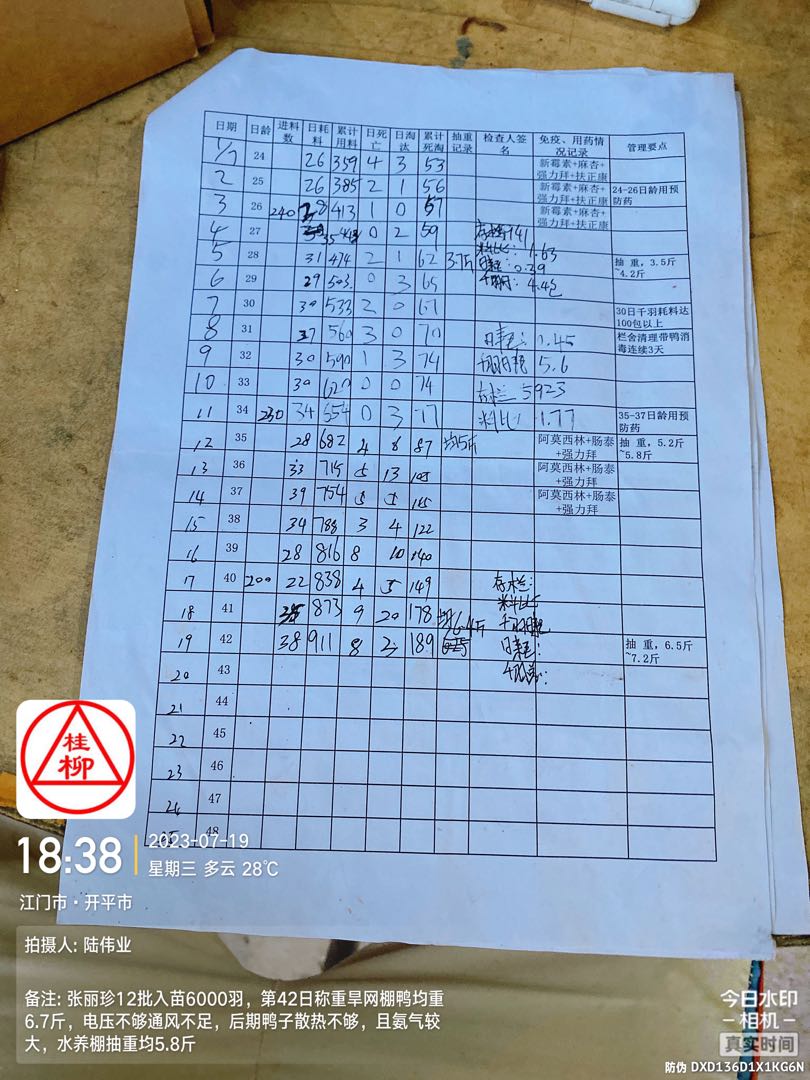 日期 日龄 进料数 日耗料 累计用料 日死亡 日淘汰 累计死淘 抽重记录 检查人签名 免疫、用药情况记录 管理要点
1/7 24 26 359 4 3 53 新霉素+麻杏+强力拜+扶正康
2 25 26 385 2 1 56 新霉素+麻杏+强力拜+扶正康 24-26日龄用预防药
3 26 240 28 413 1 0 57 新霉素+麻杏+强力拜+扶正康
4 27 0 2 59 存栏
5 28 31 474 2 1 62 3.7斤 料比: 1.63 抽重,3.5斤~4.2斤
日耗: 0.29
6 29 29 503 0 3 65 4.4包
7 30 30 533 2 0 67 30日千羽耗料达100包以上
8 31 560 3 0 70 日耗: 1.45 栏舍清理带鸭消毒连续3天
9 32 30 590 1 3 74 千羽日耗 5.6
10 33 30 620 0 0 74 存栏 5923
11 34 230 34 654 0 3 77 料比: 1.77 35-37日龄用预防药
12 35 28 682 4 6 87 均5斤 阿莫西林+肠泰+强力拜 抽重,5.2斤~5.8斤
13 36 33 715 5 13 105 阿莫西林+肠泰+强力拜
14 37 39 754 5 5 115 阿莫西林+肠泰+强力拜
15 38 34 788 3 4 122
16 39 28 816 8 10 140
17 40 200 22 838 4 5 149 存栏:
料比
18 41 35 873 9 20 178 均6.4斤 千羽日耗
19 42 38 911 8 3 189 日耗: 抽重,6.5斤~7.2斤
20 43
21 44
22 45
23 46
24 47
25 48
桂柳
18:38
2023-07-19
星期三 多云 28℃
江门市·开平市
拍摄人: 陆伟业
备注: 张丽珍12批入苗6000羽,第42日称重旱网棚鸭均重
6.7斤,电压不够通风不足,后期鸭子散热不够,且氨气较
大,水养棚抽重均5.8斤
今日水印
-相机-
真实时间
防伪 DXD136D1X1KG6N